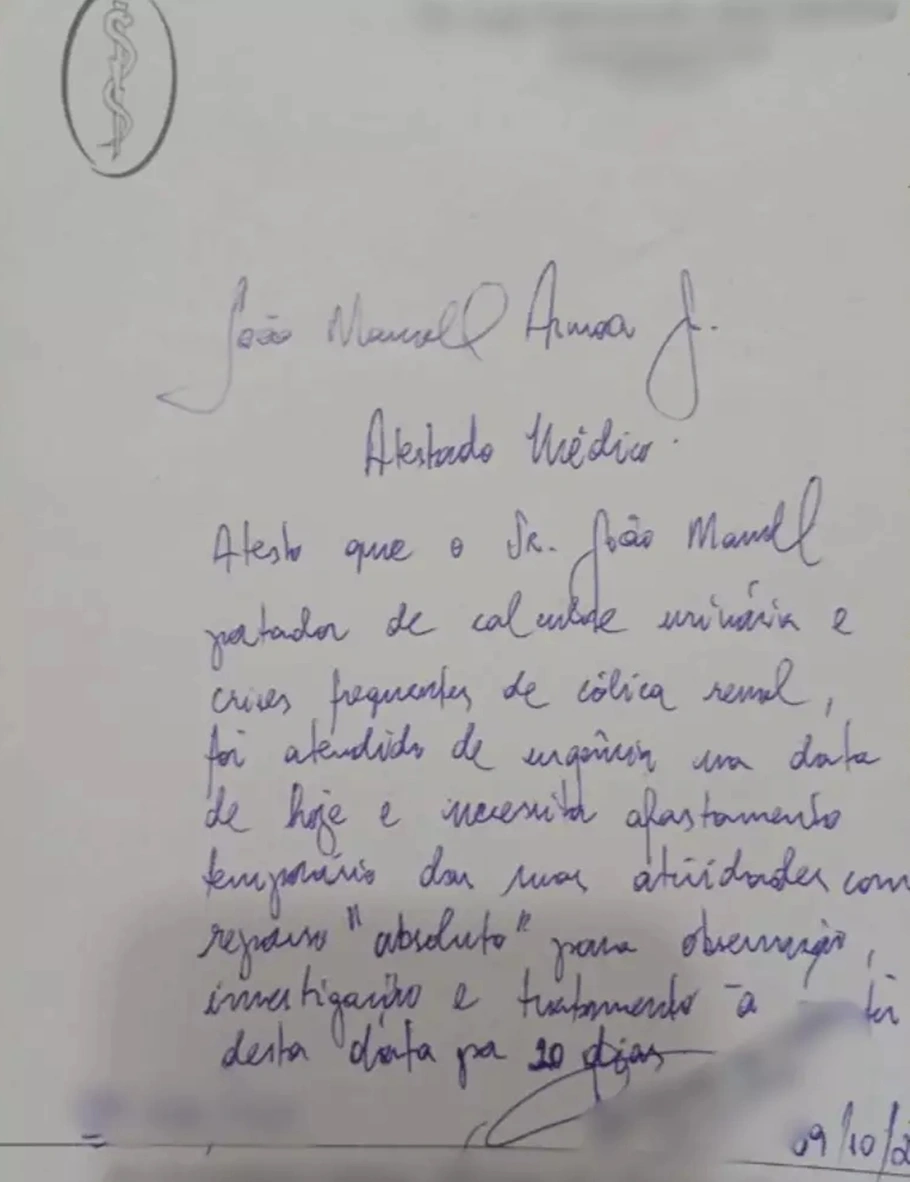 João Manoell Armoa Jr.
Atestado Médico.
Atesto que o Sr. João Manoell
portador de calculose urinária e
crises frequentes de cólica renal,
foi atendido de urgência na data
de hoje e necessita afastamento
temporário das suas atividades com
repouso "absoluto" para observação,
investigação e tratamento a
desta data por dias
09/10/2